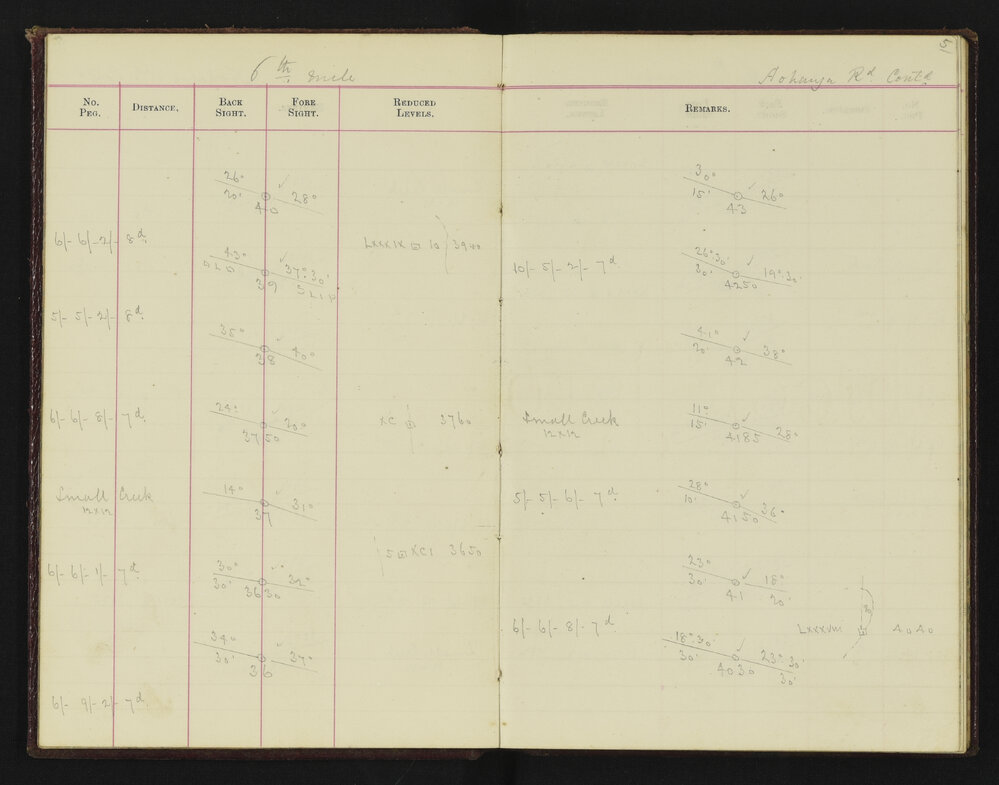 6th mile
No. Peg. Distance. Back Sight. Fore Sight. Reduced Levels.
26° 28°
20'
40
6/- 6/- 2/- 8d. LXXXIX 10 3940
43° 37°30'
OLD SLIP
39
5/- 5/- 2/- 8d.
35° 40°
38
24° 20°
6/- 6/- 8/- 7d. XC 3760
3750
14° 31°
Small Creek
12x12
37
5 XCI 3650
6/- 6/- 1/- 7d. 30° 32°
30' 3630
34° 37°
30'
36
6/- 9/- 2/- 7d.
15
Rd. Contd.
Remarks.
30° 26°
15'
43
10/- 5/- 2/- 7d. 26°30' 19°30'
30'
4250
41° 38°
20'
42
11° 28°
Small Creek 15'
12x12 4185
28° 36°
5/- 5/- 6/- 7d. 10'
4150
23° 18°
30' 20'
41
6/- 6/- 8/- 7d. LXXXVIII 4040
18°30' 23°30'
30' 30'
4030